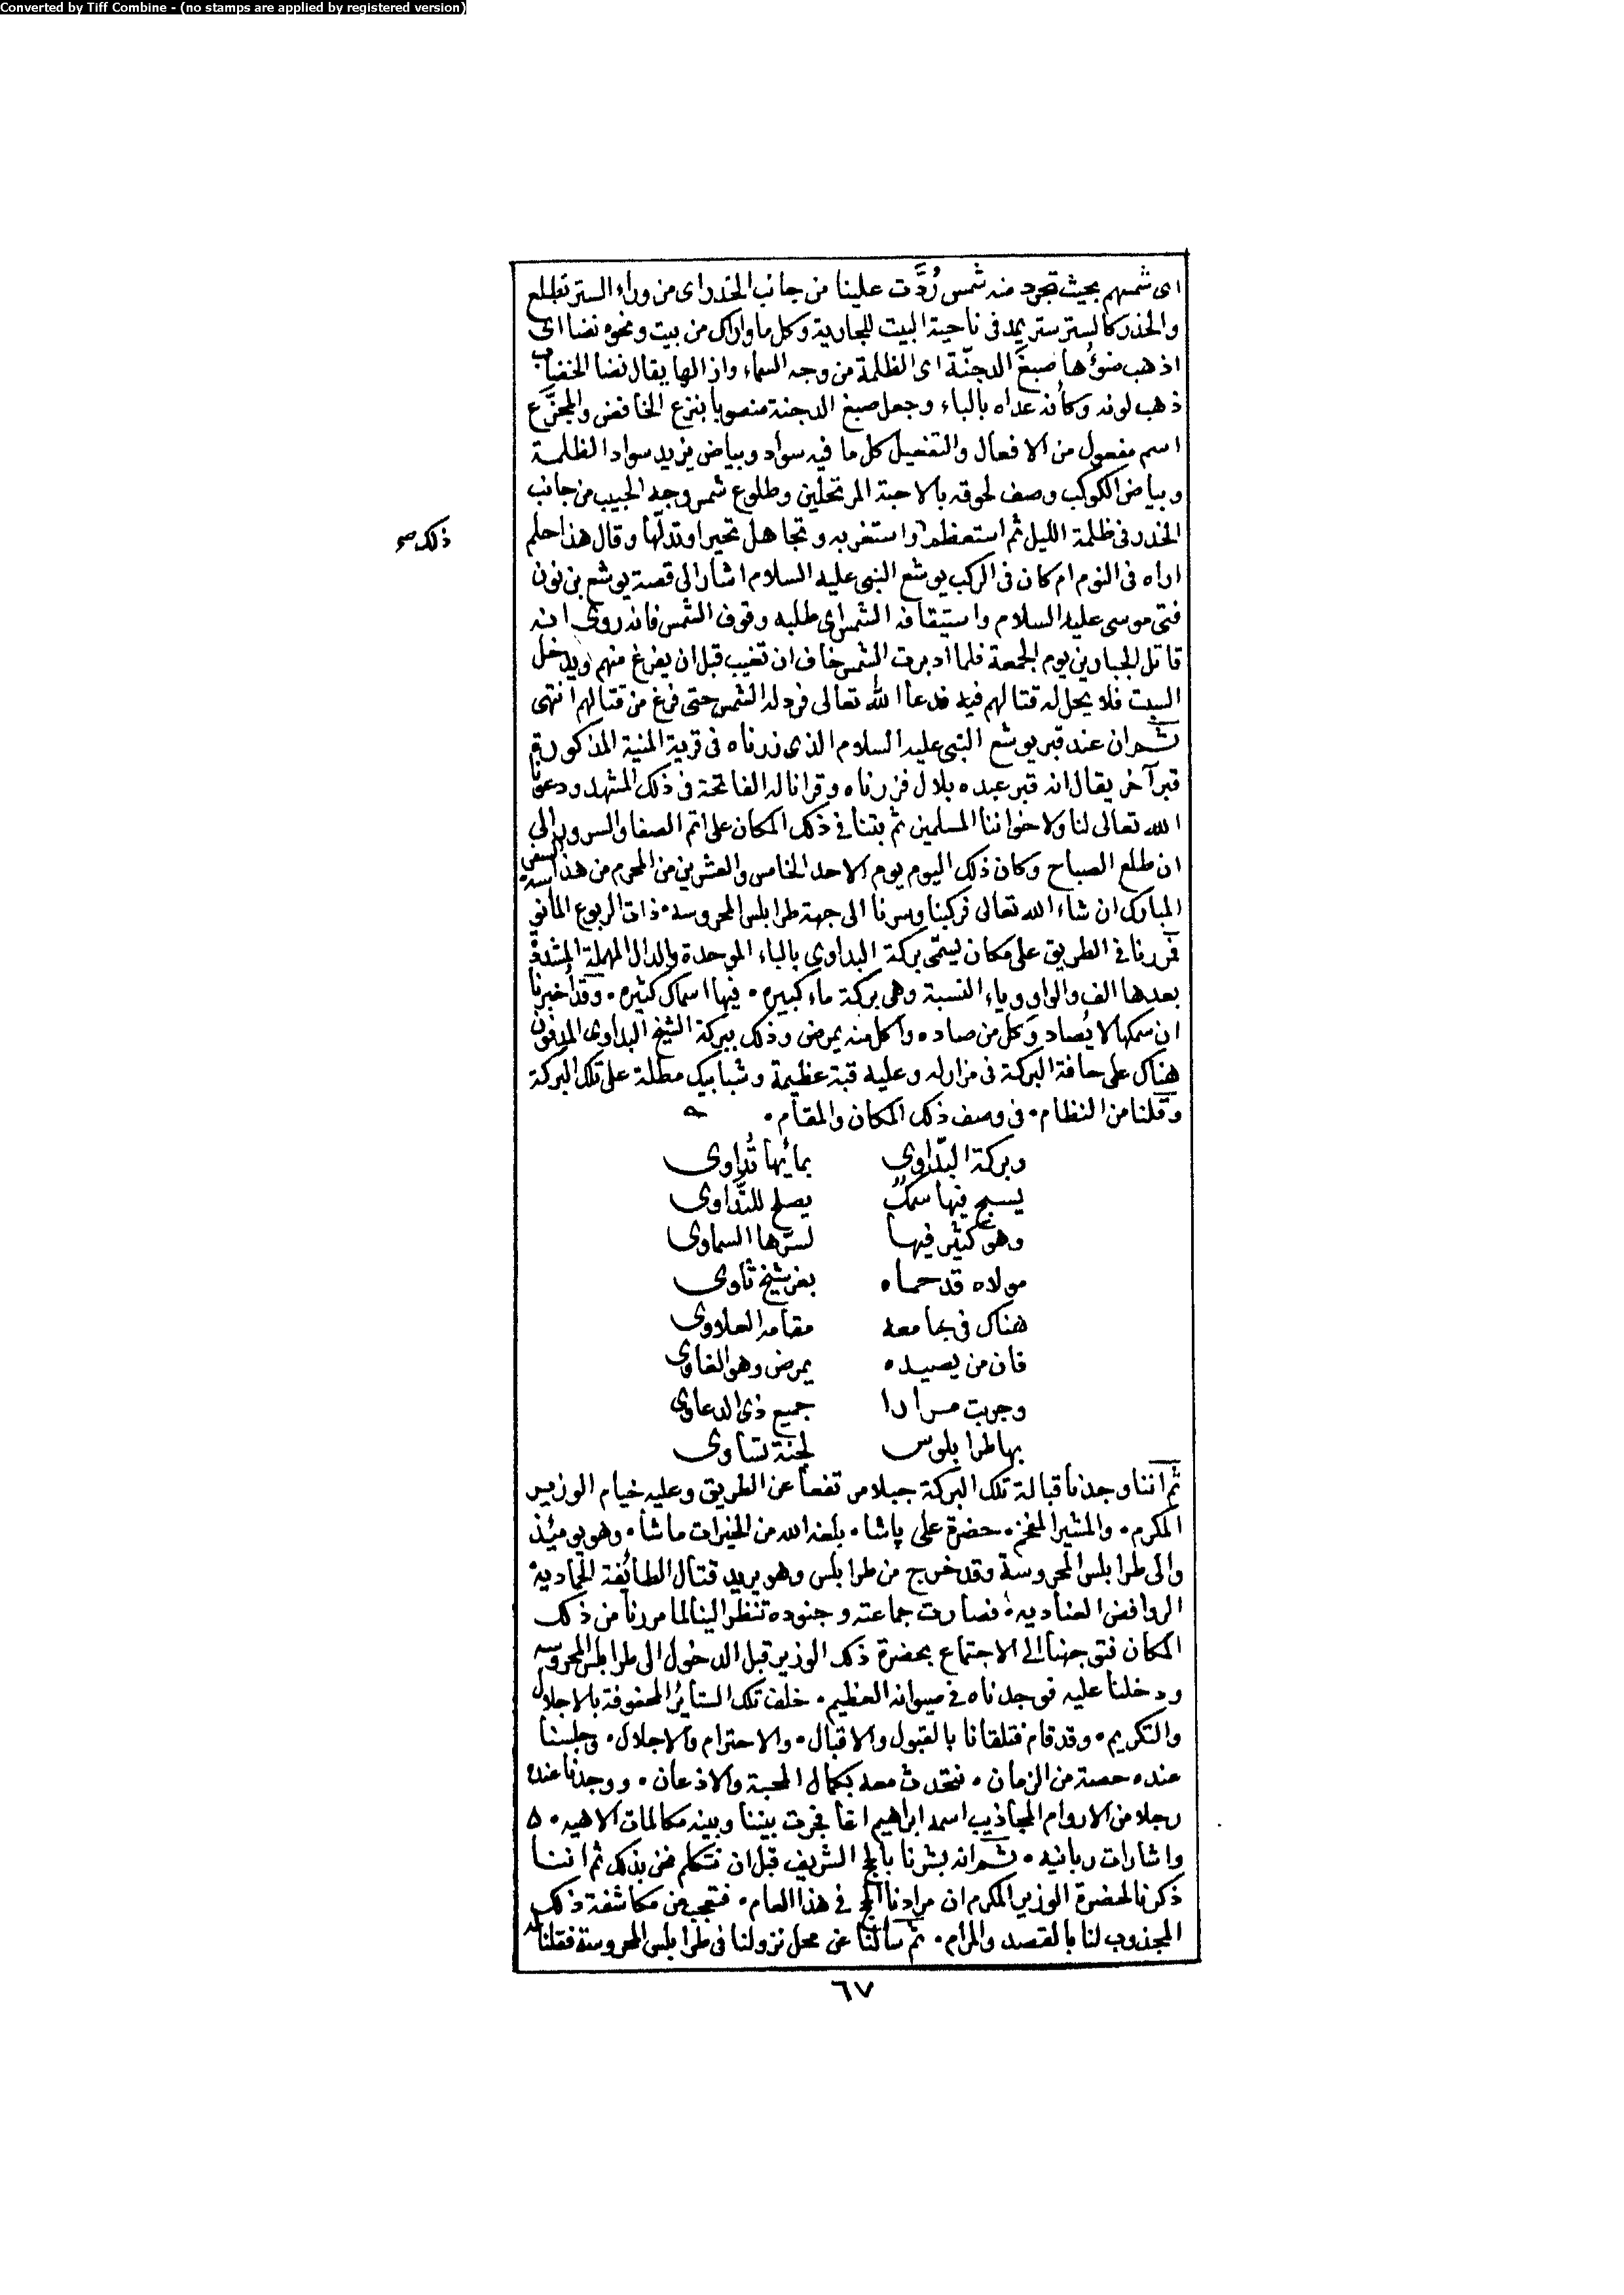 Converted by Tiff Combine - (no stamps are applied by registered version)
اى شمسهم بحيث تجرد منه شمس رُدَّت علينا من جانب الخدر اى من وراء الستر تطلع
والخدر كالستر ستر يمد فى ناحية البيت للجارية وكل ما واراك من بيت ونحوه نضا اى
اذهب ضوءُها صبغَ الدجنّة اى الظلمة من وجه السماء وازالها يقال نضا الخضاب
ذهب لونه وكأنه عداه بالباء وجعل صبغ الدجنة منصوبا بنزع الخافض والمجزَّع
اسم مفعول من الافعال والتفعيل كل ما فيه سواد وبياض يريد سواد الظلمة
وبياض الكوكب وصف لحوقه بالاحبة المرتحلين وطلوع شمس وجه الحبيب من جانب
الخدر فى ظلمة الليل ثم استعظم واستغربه وتجاهل تحيرا وتدلّها وقال هذا حلم
ذلك صح
اراه فى النوم ام كان فى الركب يوشع النبى عليه السلام اشار الى قصة يوشع بن نون
فتى موسى عليه السلام واستيقافه الشمس اى طلبه وقوف الشمس فانه روى انه
قاتل الجبارين يوم الجمعة فلما ادبرت الشمس خاف ان تغيب قبل ان يفرغ منهم ويدخل
السبت فلا يحل له قتالهم فيه فدعا الله تعالى فرد له الشمس حتى فرغ من قتالهم انتهى
ثم ان عند قبر يوشع النبى عليه السلام الذى زرناه فى قرية المنية المذكورة
قبر آخر يقال انه قبر عبده بلال فزرناه وقرانا له الفاتحة فى ذلك المشهد ودعونا
الله تعالى لنا ولاخواننا المسلمين ثم بتنا في ذلك المكان على اتم الصفا والسرور الى
ان طلع الصباح وكان ذلك اليوم يوم الاحد الخامس والعشرين من المحرم من هذا السفر
المبارك ان شاء الله تعالى فركبنا وسرنا الى جهة طرابلس المحروسه • ذات الربوع المأنوسة
فمررنا في الطريق على مكان يسمّى بركة البداوى بالباء الموحدة والدال المهملة المشددة
بعدها الف والواو وياء النسبة وهى بركة ماء كبيره • فيها اسماك كثيره • وقد أخبرنا
ان سمكها لا يُصاد وكل من صاده واكل منه يمرض وذلك ببركة الشيخ البداوى المدفون
هناك على حافة البركة فى مزار له وعليه قبة عظيمة وشبابيك مطلة على تلك البركة
وقلنا من النظام • فى وصف ذلك المكان والمقام •
وبركة البدّاوى بمائها تُداوى
يسبح فيها سمكٌ يصلح للتّداوى
وهو كثير فيها لسرّها السماوى
مولاه قد حماه بعز شيخ ثاوى
هناك فى جامعه مقامه العلاوى
فان من يصيده يمرض وهو الغاوى
وجربت مرارا جميع ذى الدعاوى
بها طرابلوس لجنة تساوى
ثم اننا وجدنا قبالة تلك البركة جبلا مرتفعا عن الطريق وعليه خيام الوزير
المكرم • والمشير المفخم • حضرة على پاشا • بلغه الله من الخيرات ما شا • وهو يومئذ
والى طرابلس المحروسة وقد خرج من طرابلس وهو يريد قتال الطائفة الحمادية
الروافض العنادية • فصارت جماعته وجنوده تنظر الينا لما مررنا من ذلك
المكان فتوجهنا الى الاجتماع بحضرة ذلك الوزير قبل الدخول الى طرابلس المحروسه
ودخلنا عليه فوجدناه في صيوانه العظيم • خلف تلك الستائر المحفوفة بالاجلال
والتكريم • وقد قام فتلقانا بالقبول والاقبال • والاحترام والاجلال • وجلسنا
عنده حصة من الزمان • نتحدث معه بكمال المحبة والاذعان • ووجدنا عنده
رجلا من الاروام المجاذيب اسمه ابراهيم اغا فجرت بيننا وبينه مكالمات الاهيه •
واشارات ربانيه • ثم انه بشرنا بالحج الشريف قبل ان نتكلم نحن بذلك ثم اننا
ذكرنا لحضرة الوزير المكرم ان مرادنا الحج فى هذا العام • فتعجب من مكاشفة ذلك
المجذوب لنا بالقصد والمرام • ثم سألنا عن محل نزولنا فى طرابلس المحروسة فقلنا له
٦٧